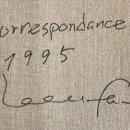 orrespondance
1995